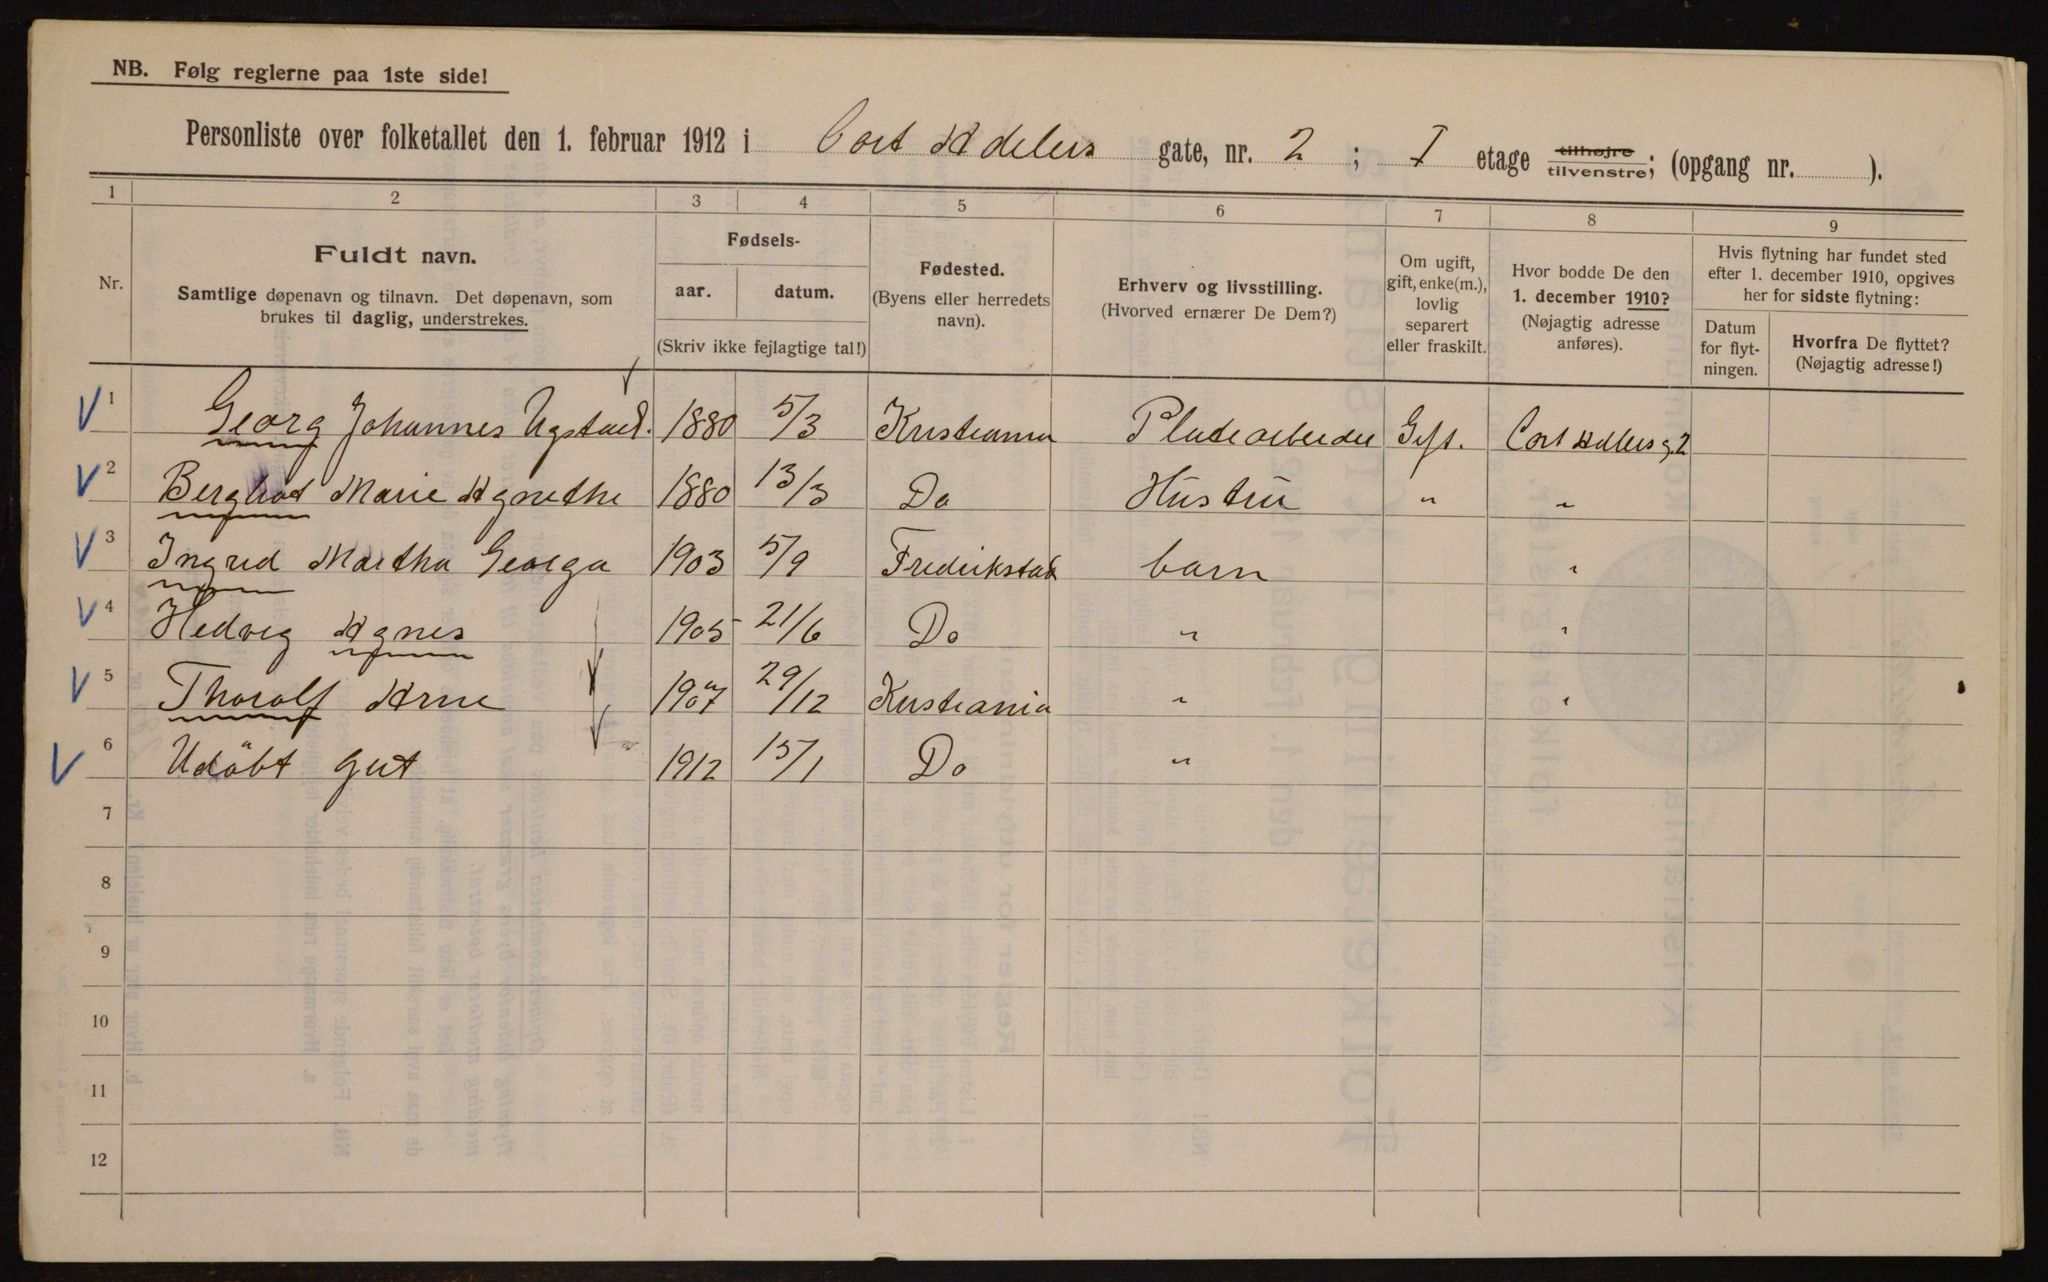 NB. Følg reglerne paa 1ste side!
Personliste over folketallet den 1. februar 1912 i Cort Adelers gate, nr. 2 ; I etage tilhøjre tilvenstre; (opgang nr. ).
1 2 3 4 5 6 7 8 9
Nr.
Fuldt navn.
Samtlige døpenavn og tilnavn. Det døpenavn, som
brukes til daglig, understrekes.
Fødsels-
aar. datum.
(Skriv ikke fejlagtige tal!)
Fødested.
(Byens eller herredets
navn).
Erhverv og livsstilling.
(Hvorved ernærer De Dem?)
Om ugift,
gift, enke(m.),
lovlig
separert
eller fraskilt.
Hvor bodde De den
1. december 1910?
(Nøjagtig adresse
anføres).
Hvis flytning har fundet sted
efter 1. december 1910, opgives
her for sidste flytning:
Datum
for flyt-
ningen.
Hvorfra De flyttet?
(Nøjagtig adresse!)
1 Georg Johannes Ugstad. 1880 5/3 Kristiania Pladearbeider Gift. Cort Adlers g. 2
2 Bergliot Marie Agnethe 1880 13/3 Do Hustru " "
3 Ingrid Martha Georga 1903 5/9 Fredrikstad barn "
4 Hedvig Agnes 1905 21/6 Do " "
5 Thorolf Arne 1907 29/12 Kristiania " "
6 Udöbt gut 1912 15/1 Do "
7
8
9
10
11
12